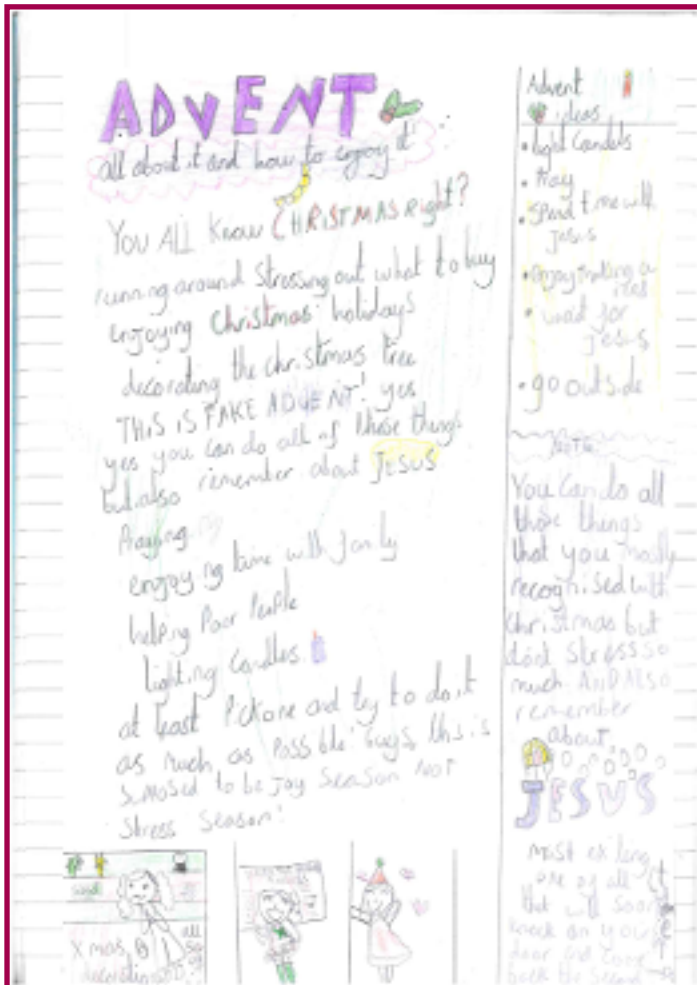 ADVENT
all about it and how to enjoy it
YOU ALL know CHRISTMAS right?
running around stressing out what to buy
enjoying Christmas holidays
decorating the christmas tree
THIS IS FAKE ADVENT! yes
yes you can do all of those things
but also remember about JESUS
Praying
enjoying time with family
helping Poor People
lighting candles
at least Pick one and try to do it
as much as Possible! Guys, this is
suposed to be Joy Season NOT
Stress Season!
Xmas
Advent
ideas
• light Candels
• Pray
• Spend time with
Jesus
• Enjoy making a
• wait for
jesus
• go outside
NOTE
You can do all
those things
that you mostly
recognised with
Christmas but
dont stress so
much. AND ALSO
remember
about
JESUS
most
one of all
that will soon
knock on your
door and come